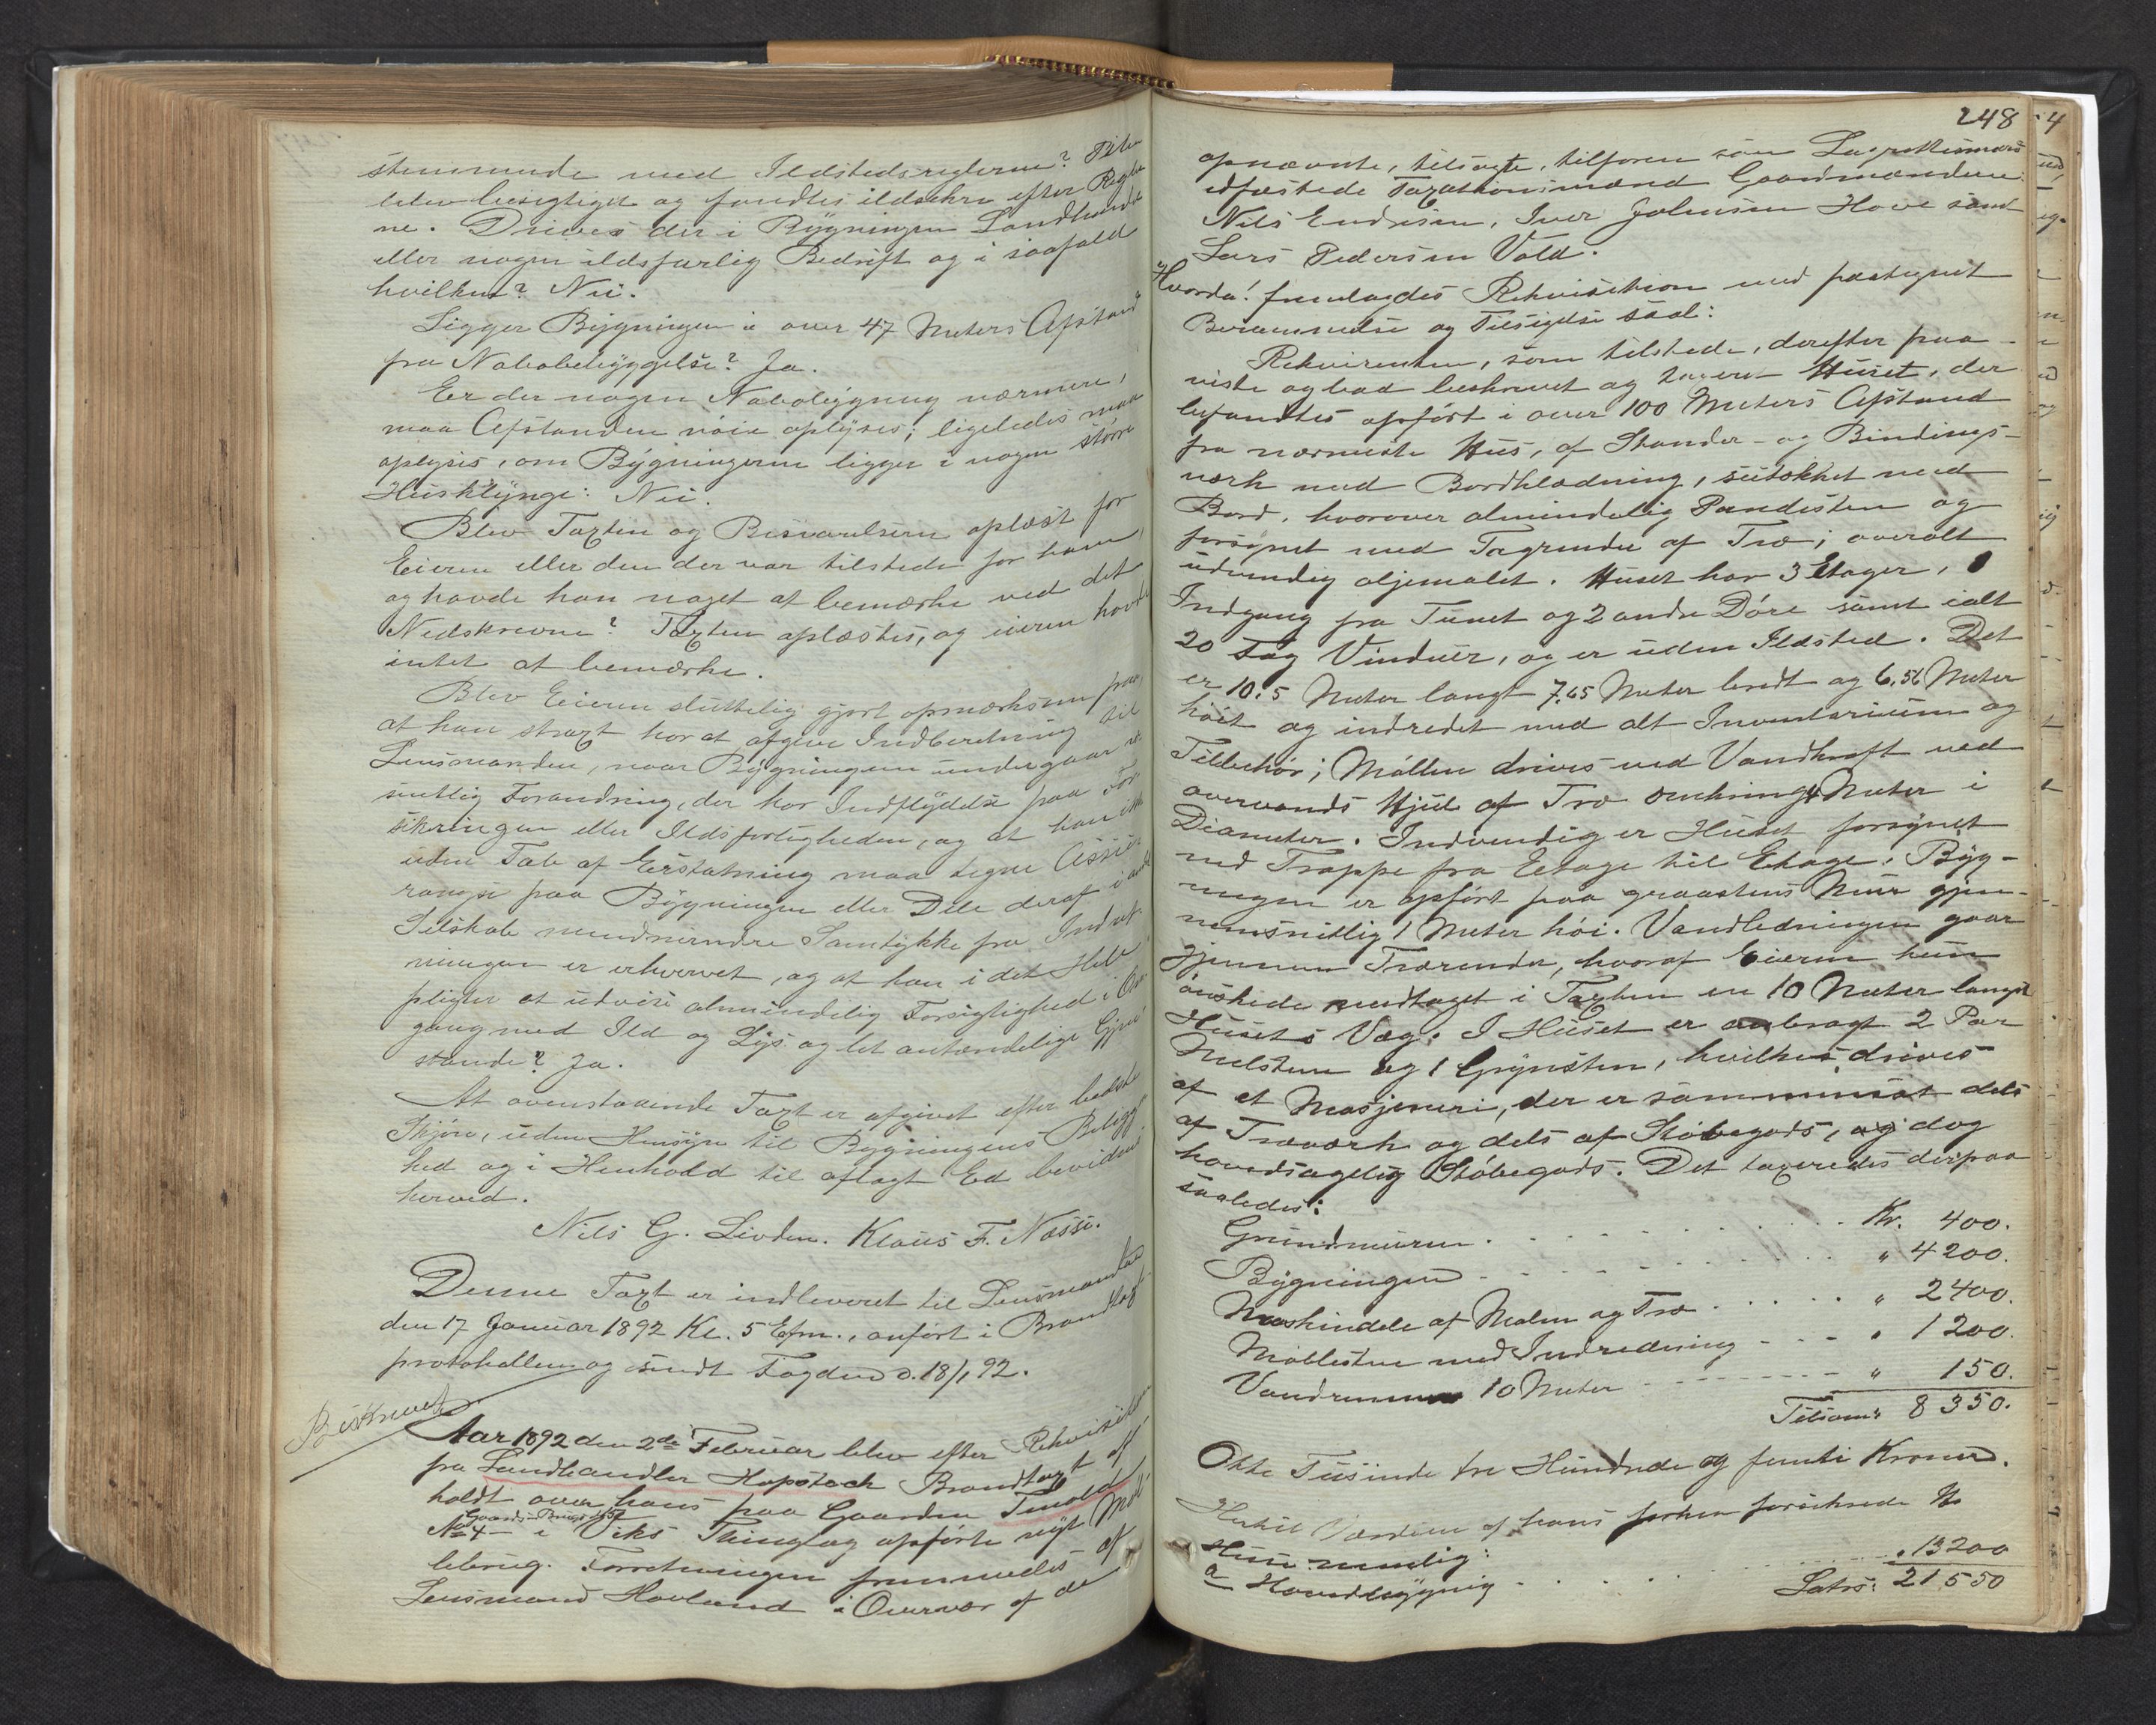 stemmende med Ildstedsreglerne? Piben
blev besigtiget og fandtes ildsikre efter Regler
ne. Drives der i Bygningen Landhandel
eller nogen ildsfarlig Bedrift og i saafald
hvilken? Nei.
Ligger Bygningen i over 47 Meters Afstand
fra Nabobebyggelse? Ja.
Er der nogen Nabobygning nærmere,
maa Afstanden nöie oplyses; ligeledes maa
oplyses, om Bygningerne ligger i nogen större
Husklynge: Nei.
Blev Taxten og Besvarelserne oplæst for
Eieren eller den der var tilstede for ham,
og havde han noget at bemærke ved det
Nedskrevne? Taxten oplæstes, og eieren havde
intet at bemærke.
Blev Eieren sluttelig gjort opmærksom paa,
at han straxt har at afgive Indberetning til
Lensmanden, naar Bygningen undergaar væ
sentlig Forandring, der har Indflydelse paa For
sikringen eller Ildsfarligheden, og at han ikke
uden Tab af Erstatning maa tegne Assu
rance paa Bygningen eller Dele deraf i andet
Selskab medmindre Samtykke fra Indret
ningen er erhvervet, og at han i det Hele
pligter at udvise almindelig Forsigtighed i Om
gang med Ild og Lys og let antændelige Gjen
stande? Ja.
At ovenstaaende Taxt er afgivet efter bedste
Skjön, uden Hensyn til Bygningens Beligg
hed og i Henhold til aflagt Ed bevidnes
herved.
Nils G. Livden. Klaus F. Nesse.
Denne Taxt er indleveret til Lensmanden
den 17 Januar 1892 Kl. 5 Efm., anført i Brandtaxt
protokollen og sendt Fogden d. 18/1 92.
Beskrevet
Aar 1892 den 2de Februar blev efter Rekvisition
fra Landhandler Hopstock Brandtaxt af
holdt over hans paa Gaarden Tenold
Gaards- Brugs
No 4 - i Viks Thinglag opförte nyt Möl
lebrug. Forretningen fremmedes af
Lensmand Hovland i Overvær af de
248
opnævnte, tilsagte, tilforn som Lagrettesmænd
edfæstede Taxationsmænd Gaardmændene
Nils Endresen, Iver Johnsen Hove samt
Lars Pedersen Vold.
Hvorda! fremlagdes Rekvisition med paategnet
Berammelse og Tilsigelse saal:
Rekvirenten, som tilstede, derefter paa-
viste og bad beskrevet og taxeret Huset, der
befandtes opfört i over 100 Meters Afstand
fra nærmeste Hus, af Stander- og Bindings-
værk med Bordklædning, sutækket med
Bord, hvorover almindelig Pandesten og
forsynet med Tagrender af Træ; overalt
udvendig oljemalet. Huset har 3 Etager, 1
Indgang fra Tunet og 2 andre Döre samt ialt
20 Fag Vinduer, og er uden Ildsted. Det
er 10.5 Meter langt 7.45 Meter bredt og 6.56 Meter
höit og indredet med alt Inventarium og
Tilbehör; Möllen drives ved Vandkraft med
overvands Hjul af Træ omkring 4 Meter i
Diameter. Indvendig er Huset forsynet
med Trappe fra Etage til Etage. Byg-
ningen er opfört paa graastens Mur gjen-
nemsnitlig 1 Meter höi. Vandledningen gaar
gjennem Trærender, hvoraf Eieren kun
önskede medtaget i Taxten en 10 Meter langs
Husets Væg. I Huset er anbragt 2 Par
Melstene og 1 Grynsten, hvilke drives
af et Masjineri, der er sammensat dels
af Træværk og dels af Stöbegods, og dog
hovedsagelig Stöbegods. Det taxeredes derpaa
saaledes:
Grundmuren . . . . . . . . . Kr. 400.
Bygningen - - - . . . . . . " 4200.
Maskindele af Malm og Træ . . . . . " 2400.
Möllestene med Indredning - - - " 1200.
Vandrenner 10 Meter - - - - - - - - " 150.
Tilsam: 8350.
Otte Tusinde tre Hundrede og femti Kroner.
Hertil Værdien af hans forhen forsikrede
Huse nemlig:
a Hovedbygning . . . . . . . . . " 13200
Latus: 21550